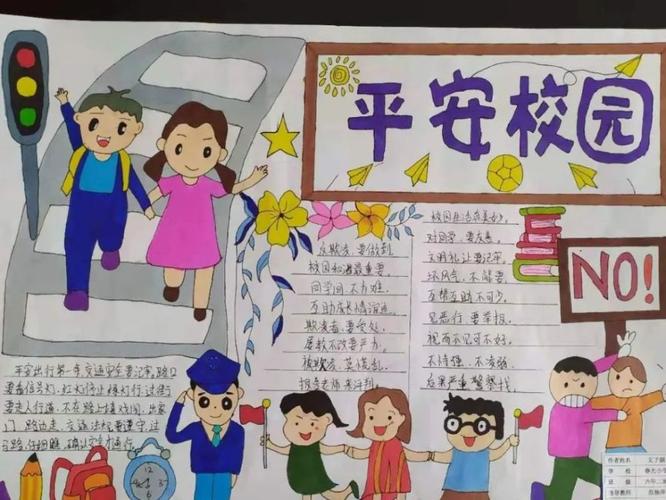 平安校园
NO!
反欺凌,要做到
校园和谐最重要。
同学间,不为难,
互助成长情谊连。
欺凌者,要受处,
屡教不改要严办。
被欺凌,莫慌乱,
报告老师来评判。
校园生活真美妙,
对同学,要友善。
文明礼让要记牢,
坏风气,不能要。
互帮互助不可少。
见恶行,要举报。
视而不见可不好。
不恃强,不凌弱。
后果严重警察找。
平安出行第一条,交通安全要记牢,路口
要看信号灯,红灯停止绿灯行,过街
要走人行道,不在路上嬉戏闹,出家
门,路边走,交通法规要遵守,过
马路,仔细瞧,确认安全才通行。
12
3
6
9
作者姓名
学校
班级
指导教师